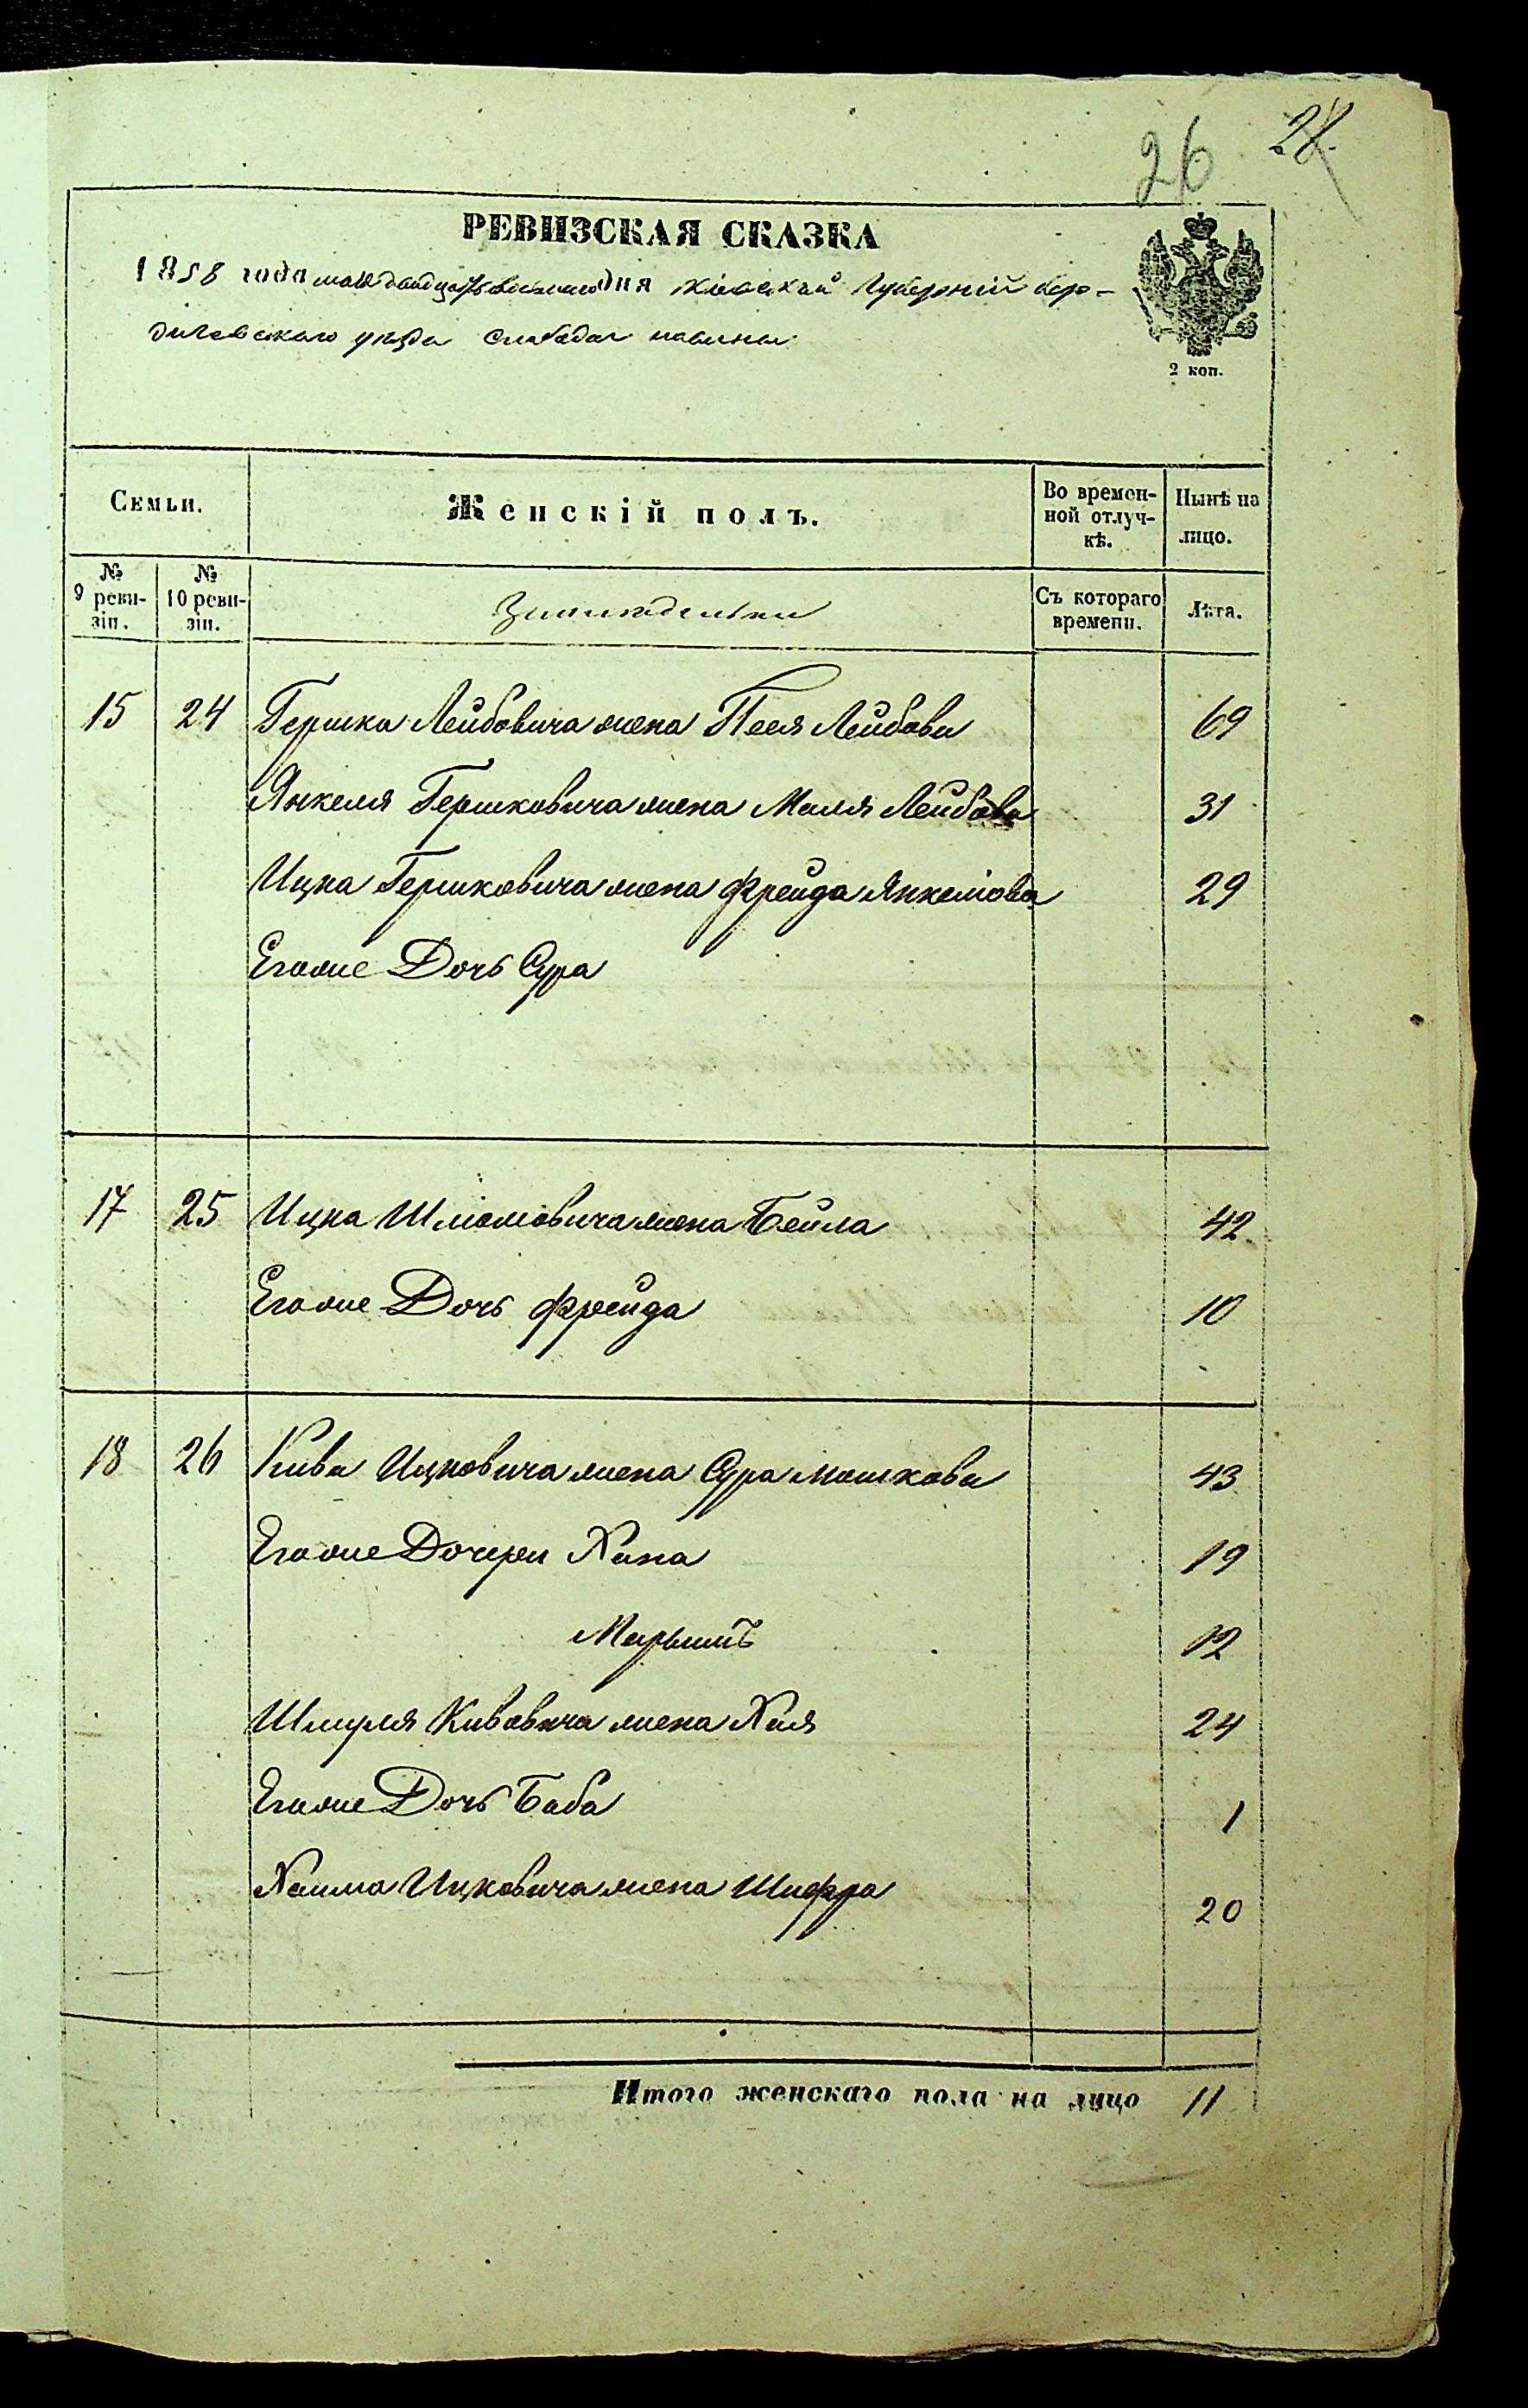 26 28.
РЕВИЗСКАЯ СКАЗКА
1858 года мая двадцать восьмого дня Кіевской Губерніи бер-
дичевского уезда слобода
2 коп.
Семьи.
Женскій полъ.
Во времен-
ной отлуч-
кѣ.
Нынѣ на
лицо.
№
9 реви-
зіи.
№
10 реви-
зіи.
Съ котораго
времени.
Лѣта.
15 24 Гершка Лейбовича жена Песя Лейбова 69
Янкеля Гершковича жена Маля Лейбова 31
Ицка Гершковича жена Фрейда Янкелiова 29
Егоже Дочь Сура
17 25 Ицка Шліомовича жена Бейла 42
Егоже Дочь Фрейда 10
18 26 Кива Ицковича жена Сура Мошкова 43
Егоже Дочери Хана 19
Марьимъ 12
Шмуля Кивовича жена Хая 24
Егоже Дочь Баба 1
Хаима Ицковича жена Шифра 20
Итого женскаго пола на лицо 11